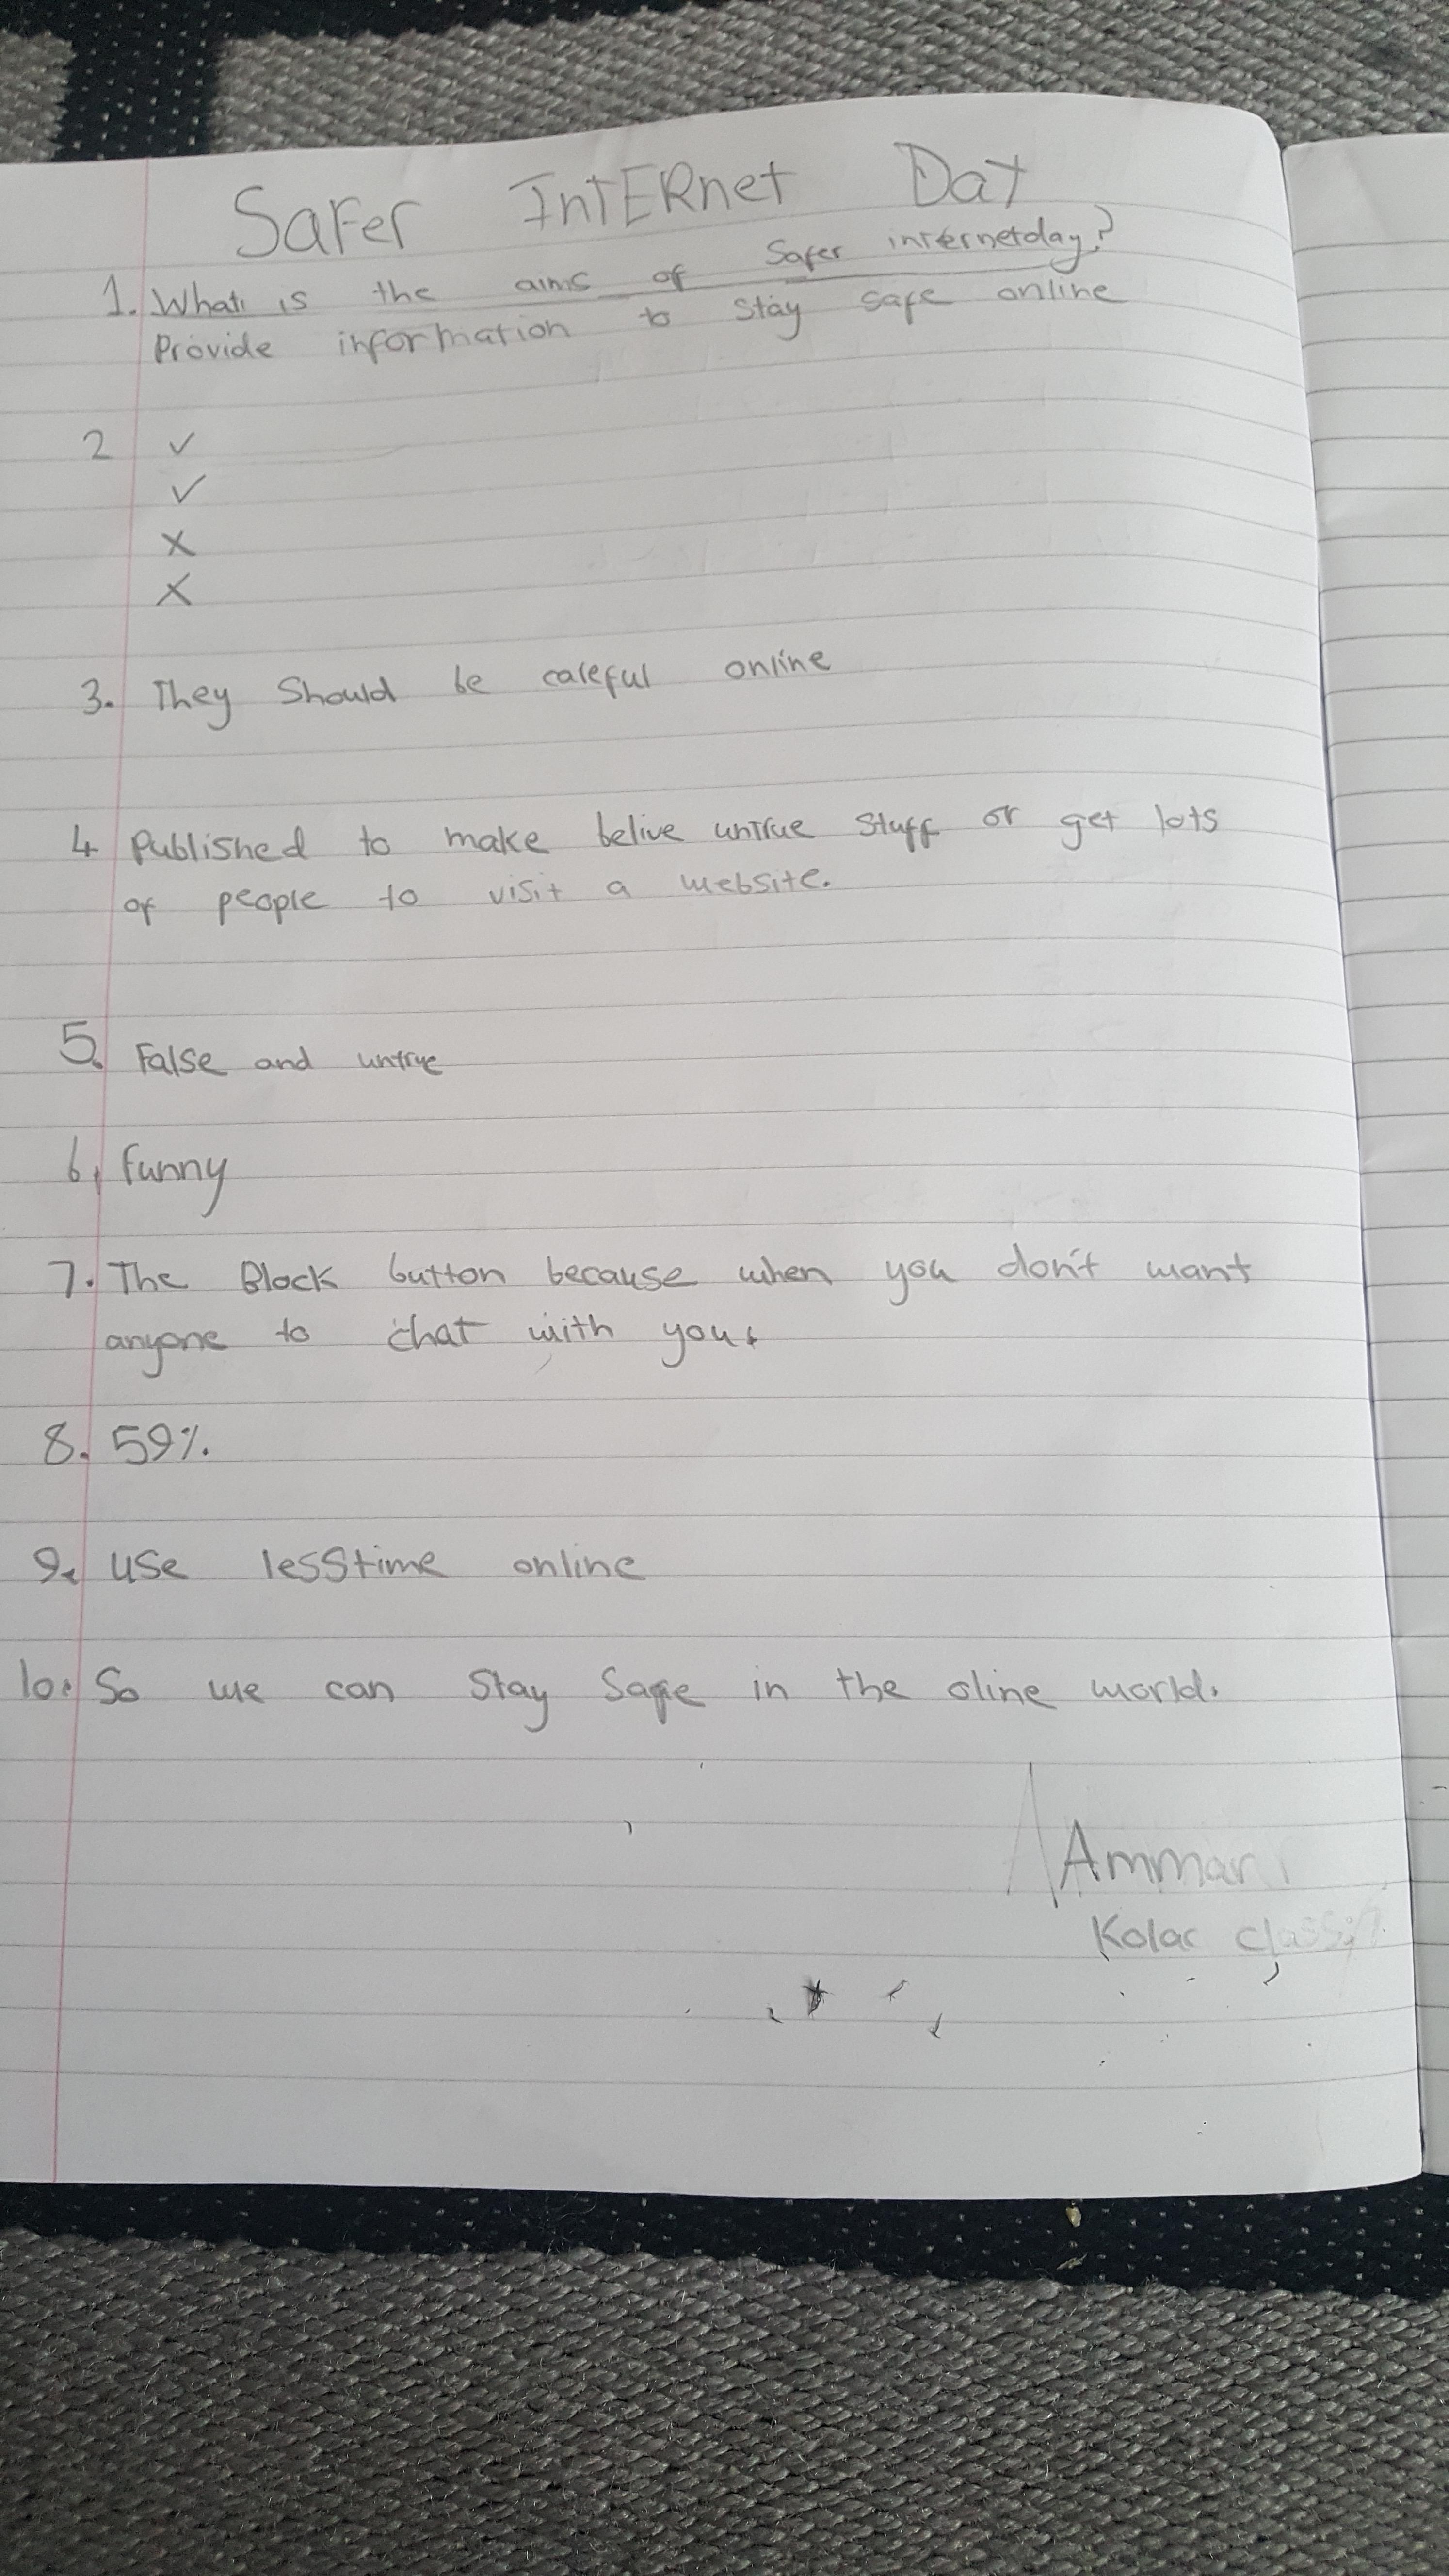 Safer IntERnet Day
1. What is the aims of Safer internetday?
Provide information to stay safe online
2 ✓
✓
X
X
3. They Should be careful online
4 Published to make belive untrue stuff or get lots
of people to visit a website.
5. False and untrue
6. funny
7. The Block button because when you don't want
anyone to chat with you.
8. 59%.
9. use lesstime online
10. So we can Stay Safe in the oline world.
Ammar
Kolac